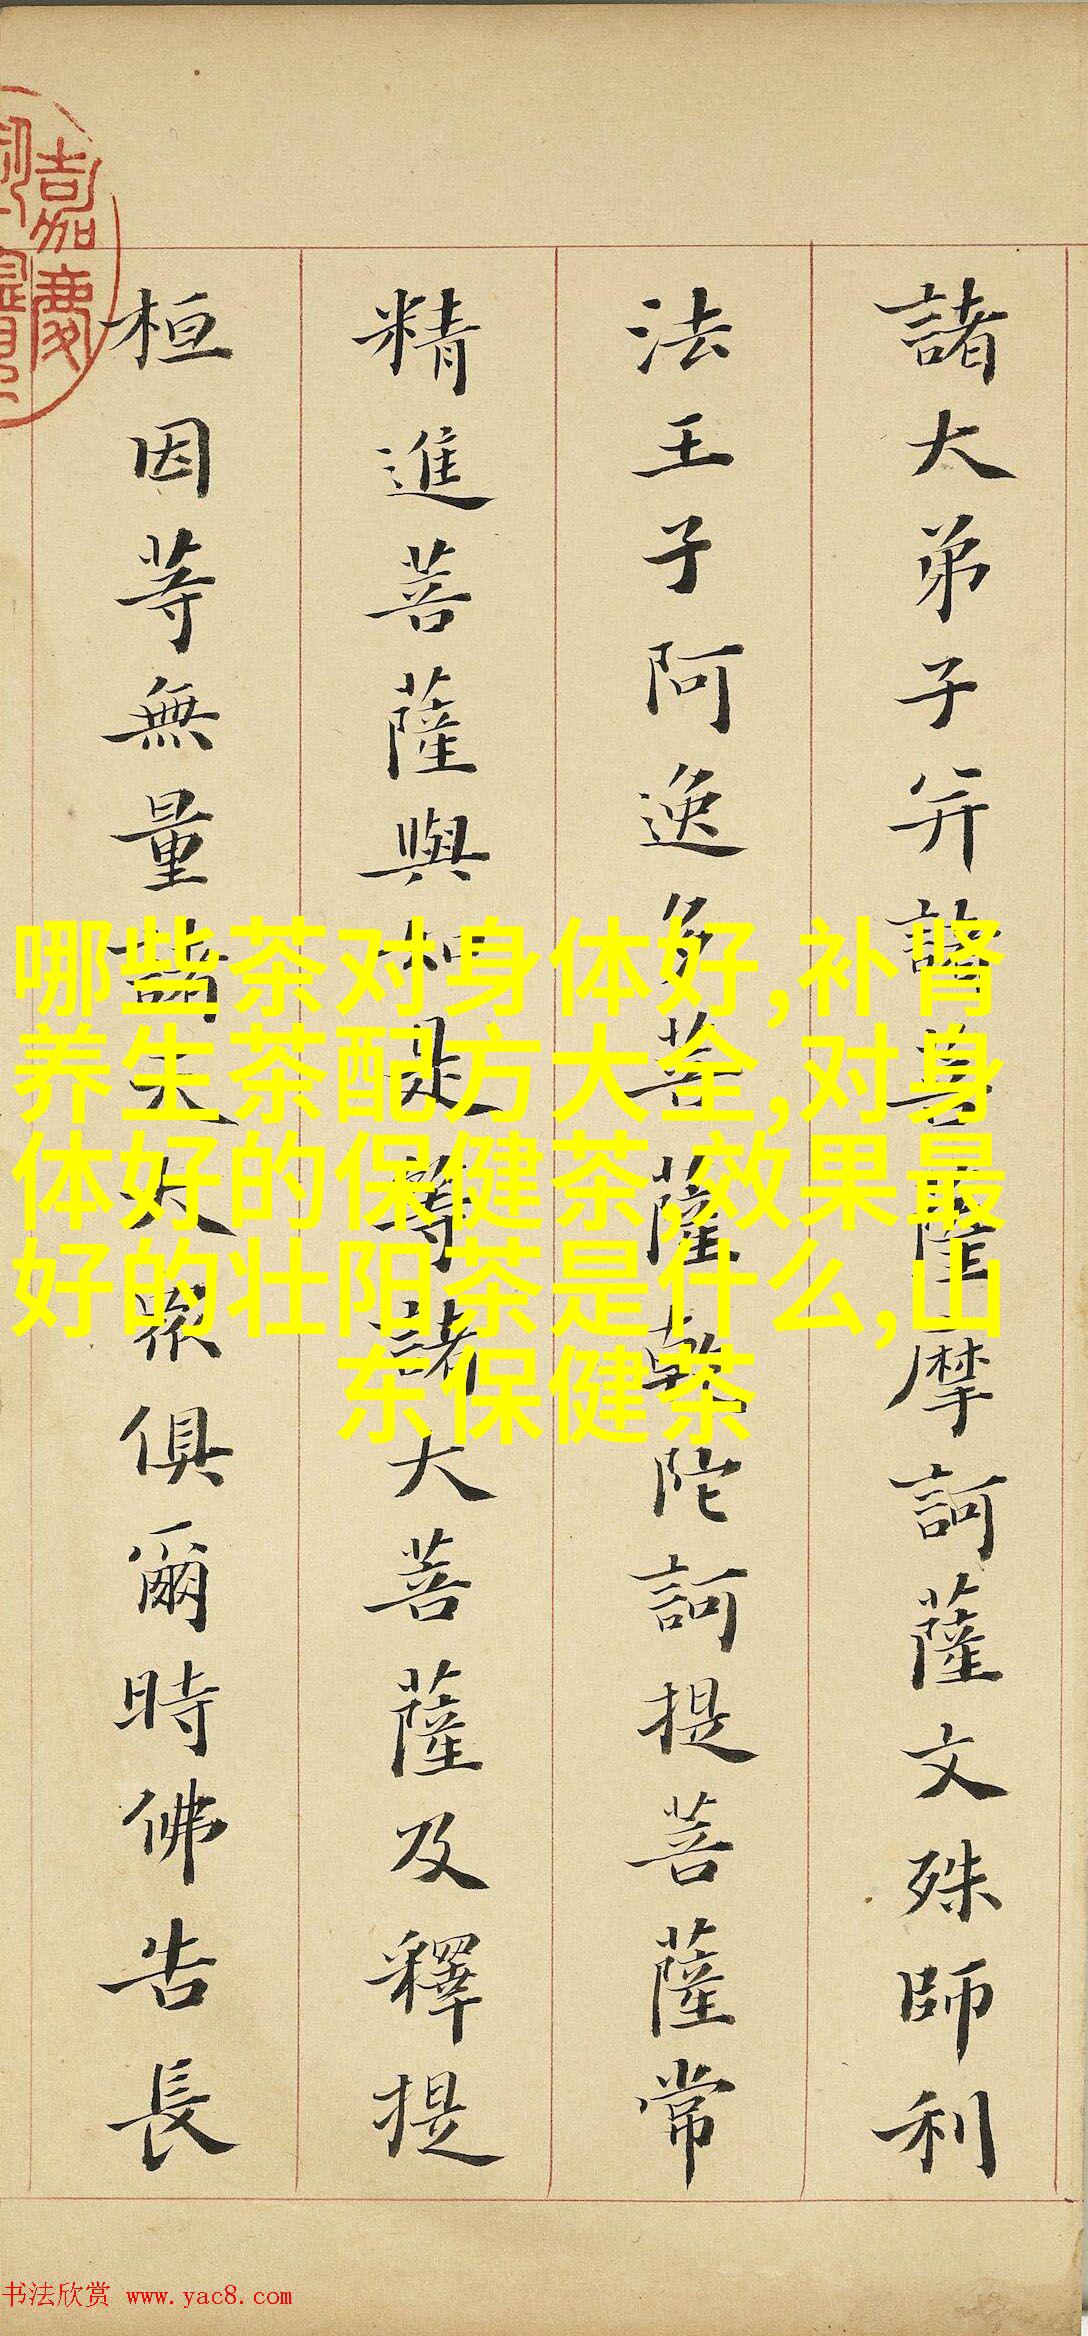 諸大弟子并諸菩薩摩訶薩文殊師利
法王子阿逸多菩薩乾陀訶提菩薩常
精進菩薩與如是等諸大菩薩及釋提
桓因等無量諸天大眾俱爾時佛告長
嘉慶
哪些茶对身体好,补肾
养生茶配方大全,对身
体好的保健茶,效果最
好的壮阳茶是什么,山
东保健茶
书法欣赏 www.yac8.com